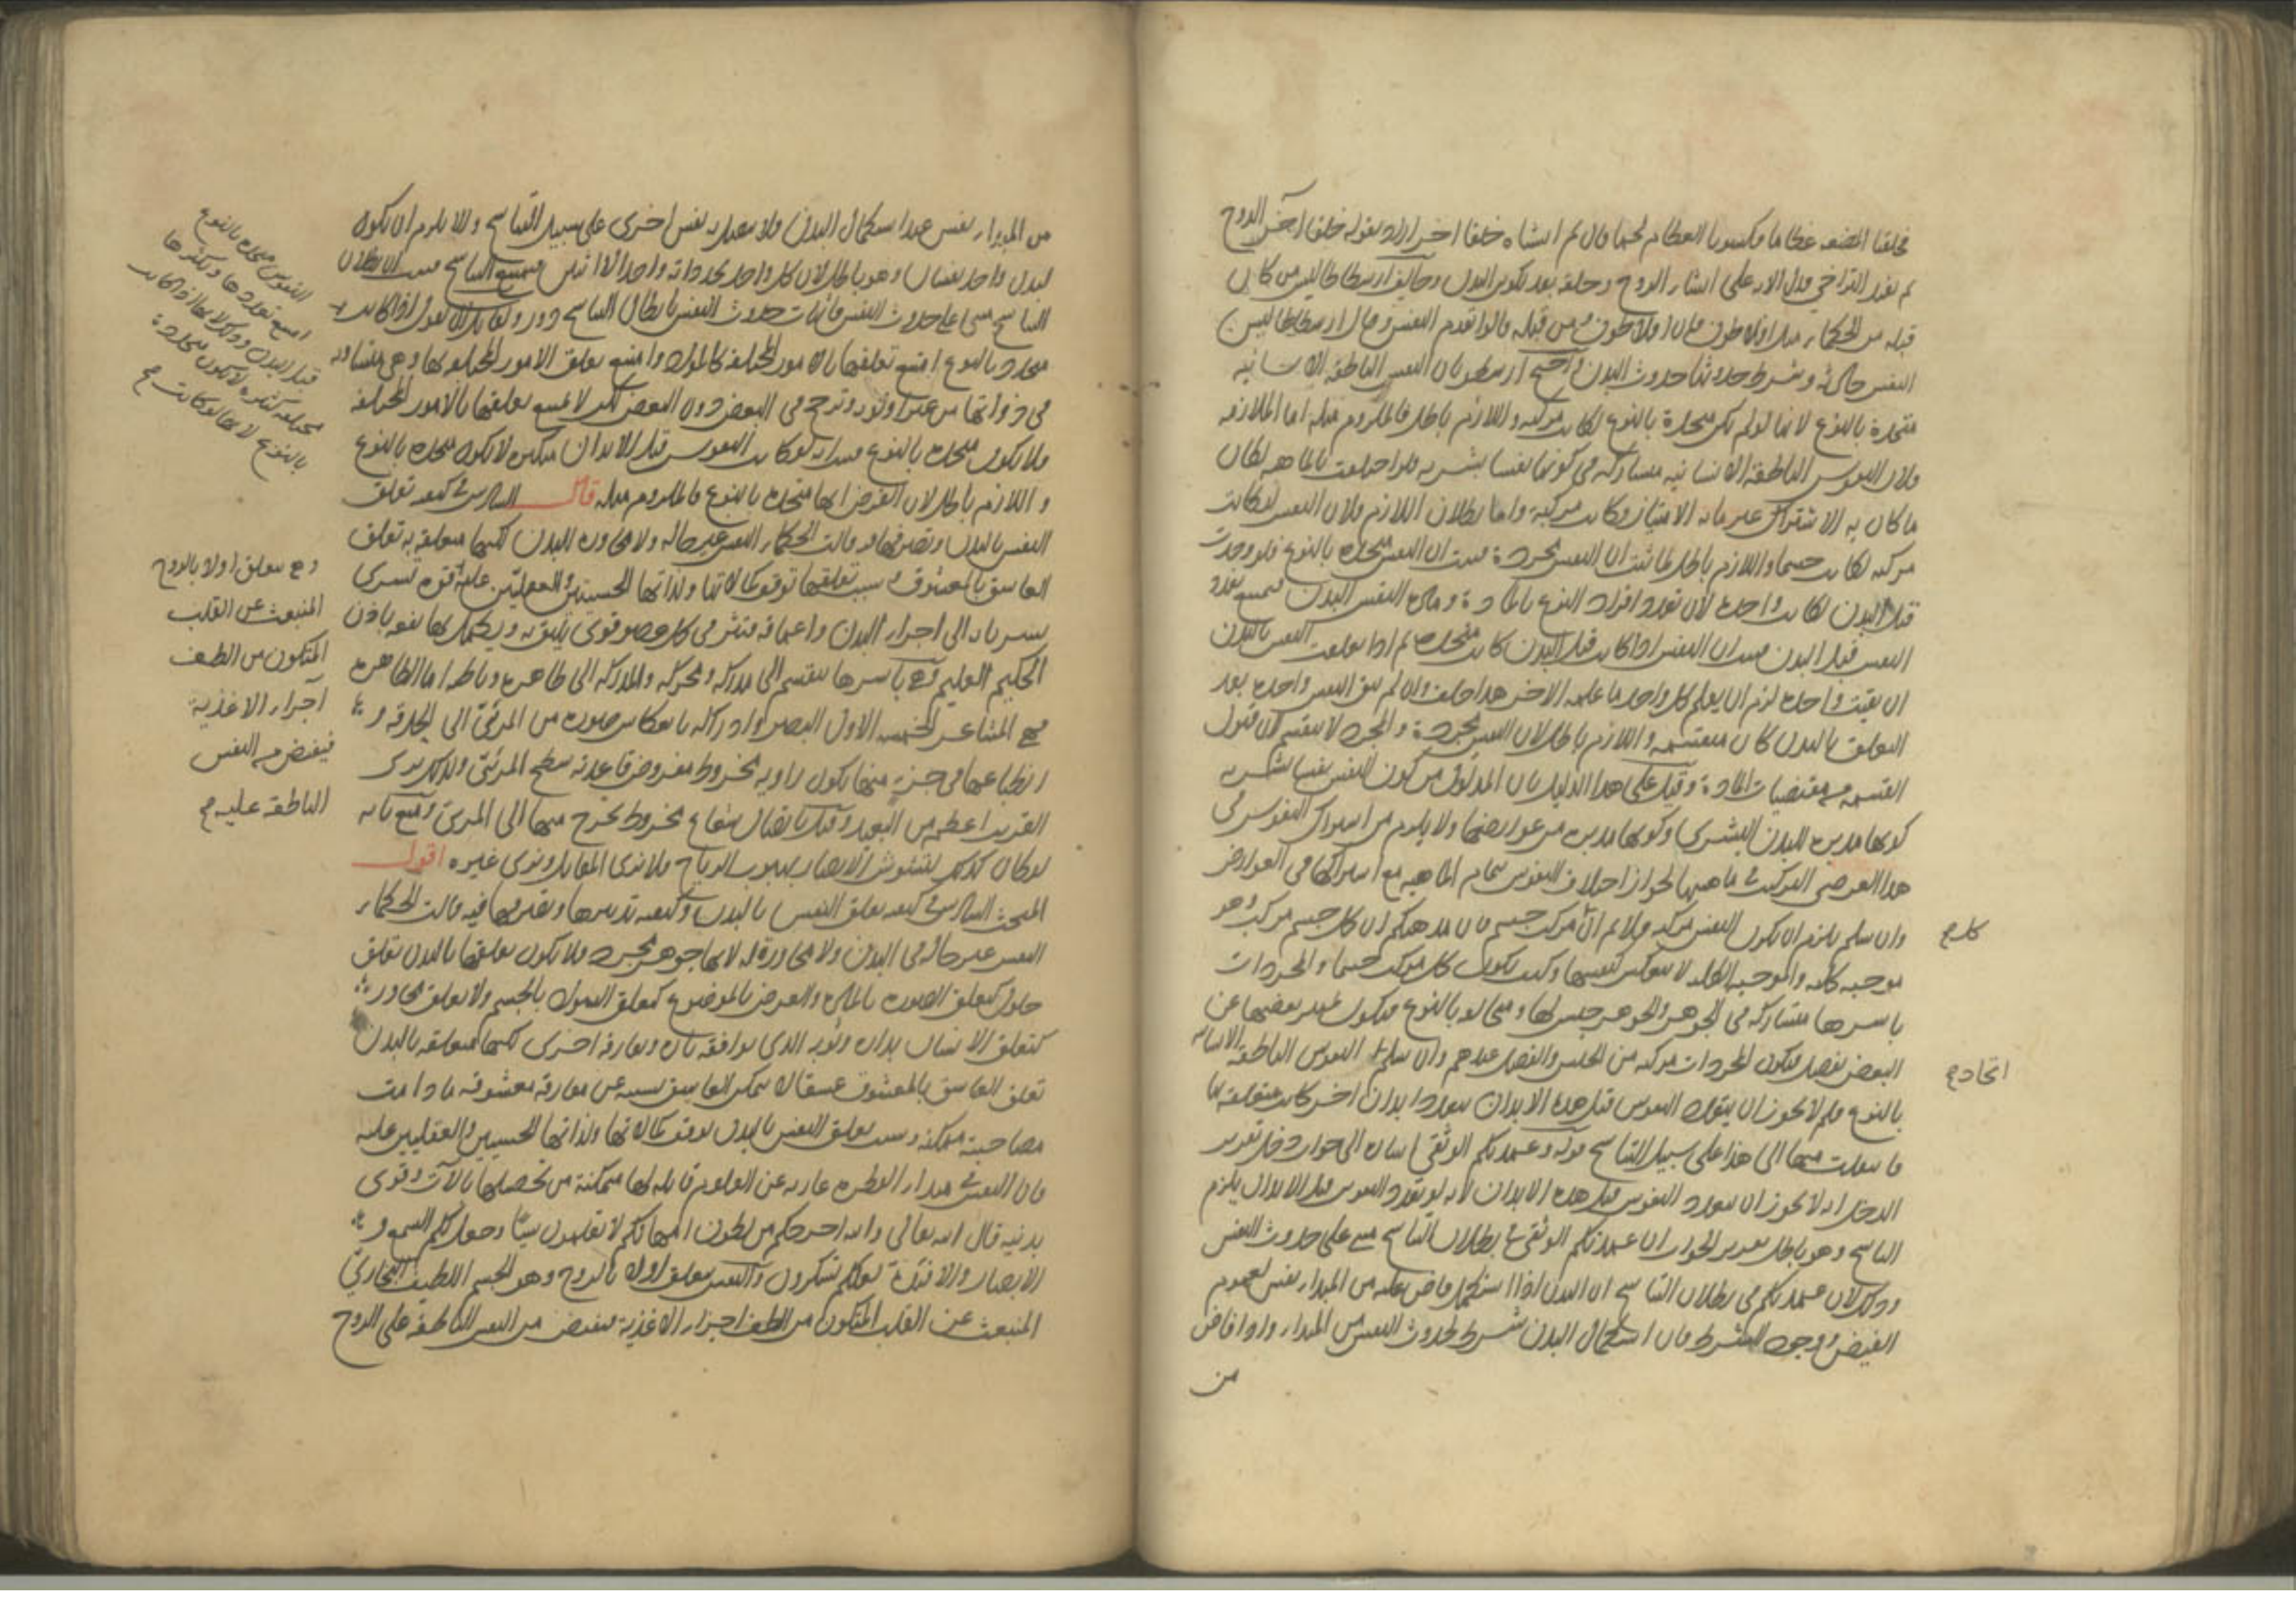 فخلقنا المضغة عظاما فكسونا العظام لحما قال ثم انشأناه خلقا اخر اراد بقوله خلقا اخر الروح
ثم يفيد التراخي فدل الاية على انشاء الروح وخلقه بعد تكون البدن وخالف ارسطاطاليس من كان
قبله من الحكماء مثل افلاطون فان افلاطون ومن قبله قالوا بقدم النفس وقال ارسطاطاليس
النفس حادثة وشرط حدوثها حدوث البدن واحتج ارسطو بان النفس الناطقة الانسانية
متحدة بالنوع لانها لو لم تكن متحدة بالنوع لكانت مركبة واللازم باطل فالملزوم مثله اما الملازمة
فلان النفوس الناطقة الانسانية مشاركة في كونها نفسا بشرية فلو اختلفت بالماهية لكان
ما كان به الاشتراك غير ما به الامتياز وكانت مركبة واما بطلان اللازم فلان النفس لو كانت
مركبة لكانت جسما واللازم باطل لما ثبت ان النفس مجردة فثبت ان النفس متحدة بالنوع فلو وجدت
قبل البدن لكانت واحدة لان تعدد افراد النوع بالمادة ومادة النفس البدن فيمتنع تعدد
النفس قبل البدن فثبت ان النفس اذا كانت قبل البدن كانت متحدة ثم اذا تعلقت النفس بالبدن
ان بقيت واحدة لزم ان يعلم كل واحد ما علمه الاخر هذا خلف وان لم تبق النفس واحدة بعد
التعلق بالبدن كان منقسمة واللازم باطل لان النفس مجردة والمجرد لا ينقسم لان قبول
القسمة من مقتضيات المادة وقيل على هذا الدليل بان المدلول من كون النفس نفسا بشرية
كونها مدبرة للبدن البشري وكونها مدبرة من عوارضها ولا يلزم من اشتراك النفوس في
هذا العرضي التركيب في ماهيتها لجواز اختلاف النفوس بتمام الماهية مع اشتراكها في العوارض
وان سلم يلزم ان يكون النفس مركبة فلا نم ان كل مركب جسم فان مذهبكم ان كل جسم مركب وهو
موجبة كلية والموجبة الكلية لا تنعكس كنفسها وكيف يكون كل مركب جسما والمجردات
باسرها متشاركة في الجوهر والجوهر جنس لها ومتخالفة بالنوع فيكون تميز بعضها عن
البعض بفصل فيكون المجردات مركبة من الجنس والفصل عندهم وان سلم النفوس الناطقة الانسانية
بالنوع فلم لا يجوز ان يتعدد النفوس قبل هذه الابدان بتعدد ابدان اخر كانت متعلقة بها
فانتقلت منها الى هذا على سبيل التناسخ قوله وعمدتكم الوثقى اشارة الى جواب دخل تقدير
الدخل انه لا يجوز ان تتعدد النفوس قبل هذه الابدان لانه لو تعدد النفوس قبل الابدان يلزم
التناسخ وهو باطل تقرير الجواب ان عمدتكم الوثقى في بطلان التناسخ مبني على حدوث النفس
وذلك لان عمدتكم في بطلان التناسخ ان البدن اذا استكمل فاض عليه من المبداء نفس لعموم
الفيض ووجود الشرط فان استكمال البدن شرط لحدوث النفس من المبداء واذا فاض
من
كل ص
اتحاد ص
من المبداء نفس عند استكمال البدن فلا يتصل به نفس اخرى على سبيل التناسخ والا يلزم ان يكون
لبدن واحد نفسان وهو باطل لان كل واحد يجد ذاته واحدا لا اثنين فيمتنع التناسخ فثبت ان بطلان
التناسخ مبني على حدوث النفس فاثبات حدوث النفس بابطال التناسخ دور ولقائل ان يقول اذا كانت
متحدة بالنوع امتنع تعلقها بالامور المختلفة كالمواد وامتنع تعلق الامور المختلفة بها وهي متساوية
في ذواتها من غير اولوية وترجيح في البعض دون البعض لكن لا يمتنع تعلقها بالامور المختلفة
فلا يكون متحدة بالنوع فثبت انه لو كانت النفوس قبل الابدان متكثرة لا تكون متحدة بالنوع
واللازم باطل لان الفرض انها متحدة بالنوع فالملزوم مثله قال السادس في كيفية تعلق
النفس بالبدن وتصرفها فيه قالت الحكماء النفس غير حالة ولا مجاورة البدن لكنها متعلقة به تعلق
العاشق بالمعشوق وسبب تعلقها توقف كمالاتها ولذاتها الحسيتين والعقليتين عليه قوة تسري
بسريانه الى اجزاء البدن واعماقه فتثير في كل عضو قوى تليق به ويكمل بها نفعه باذن
الحكيم العليم وهي باسرها تنقسم الى مدركة ومحركة والمدركة الى ظاهرة وباطنة اما الظاهرة
فهي المشاعر الخمسة الاول البصر وادراكه بانعكاس صورة من المرئي الى الحدقة و
انطباعها في جزء منها يكون زاوية مخروط مفروض قاعدته سطح المرئي ولذلك يرى
القريب اعظم من البعيد وقيل باتصال شعاع مخروط يخرج منها الى المرئي ومنع بانه
لو كان كذلك لتشوش الابصار بهبوب الرياح فلا ترى المقابل وترى غيره اقول
المبحث السادس في كيفية تعلق النفس بالبدن وكيفية تدبيرها وتصرفها فيه قالت الحكماء
النفس غير حالة في البدن ولا مجاورة له لانها جوهر مجرد فلا يكون تعلقها بالبدن تعلق
حلول كتعلق الصورة بالمادة والعرض بالموضوع كتعلق السواد بالجسم ولا تعلق مجاورة
كتعلق الانسان بداره وثوبه الذي يوافقه تارة ويفارقه اخرى لكنها متعلقة بالبدن
تعلق العاشق بالمعشوق عشقا لا يتمكن العاشق بسببه عن مفارقة معشوقه ما دامت
مصاحبته ممكنة وسبب تعلق النفس بالبدن توقف كمالاتها ولذاتها الحسيين والعقليين عليه
فان النفس في مبداء الفطرة عارية عن العلوم قابلة لها متمكنة من تحصيلها بالآت وقوى
بدنية قال الله تعالى والله اخرجكم من بطون امهاتكم لا تعلمون شيئا وجعل لكم السمع و
الابصار والافئدة لعلكم تشكرون والنفس تتعلق اولا بالروح وهو الجسم اللطيف البخاري
المنبعث عن القلب المتكون من الطف اجزاء الاغذية فيفيض من النفس الناطقة على الروح
النفوس متحدة بالنوع
امتنع تعددها وتكثرها
قبل البدن وذلك لانها اذا كانت
مختلفة متكثرة لا تكون متحدة
بالنوع لانها لو كانت ص
وهي تتعلق اولا بالروح
المنبعث عن القلب
المتكون من الطف
اجزاء الاغذية
فيفيض من النفس
الناطقة عليه ص